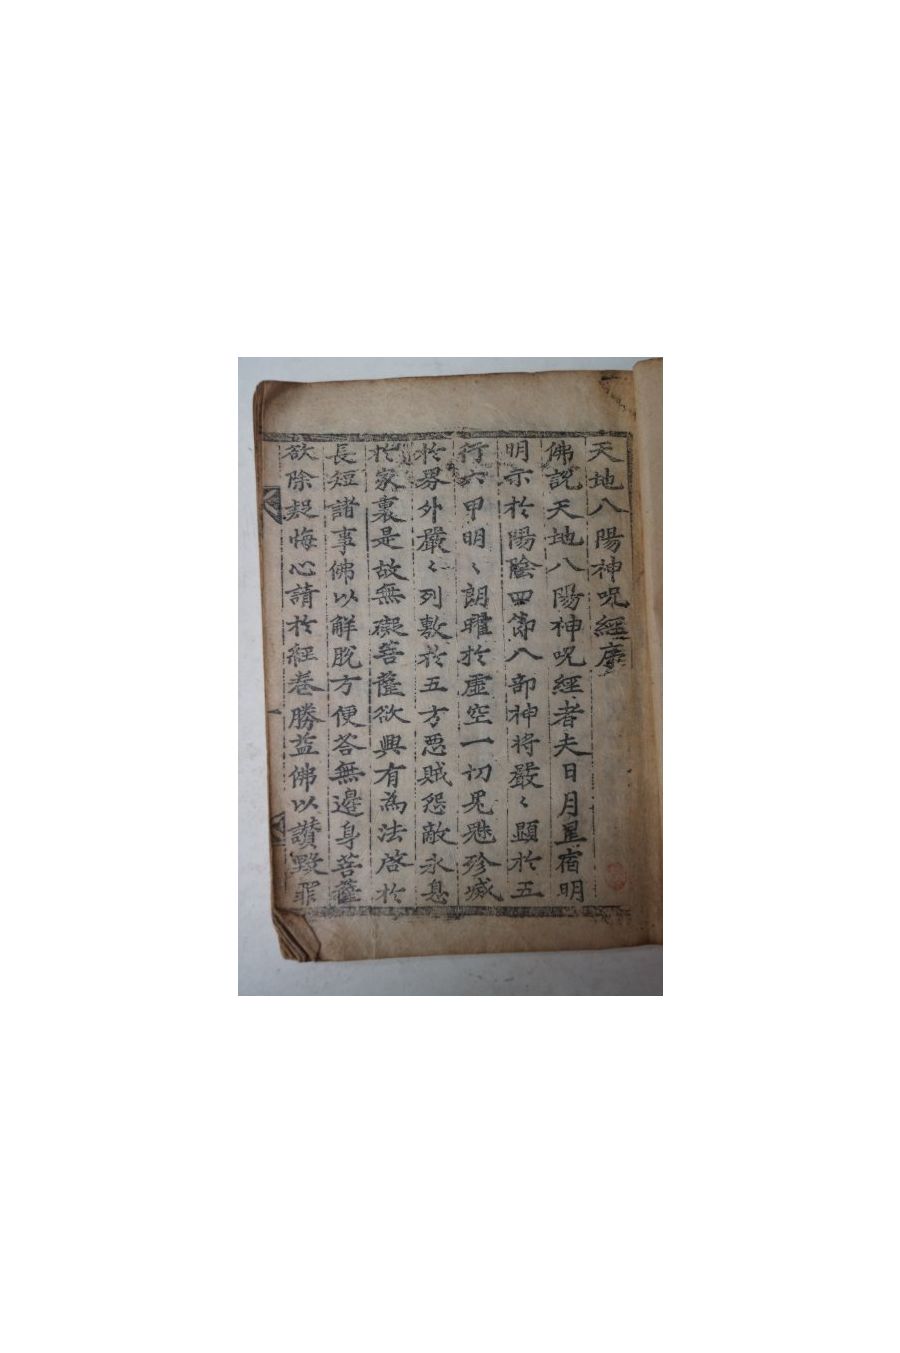 天地八陽神呪經序
佛說天地八陽神呪經者夫日月星宿明
明示於陽陰四節八部神将嚴〻顕於五
行六甲明〻朗曜於虛空一切鬼魅殄滅
於界外嚴〻列敷於五方惡賊怨敵永息
於家裏是故無礙菩薩欲興有為法啓於
長短諸事佛以解脫方便答無邊身菩薩
欲除疑悔心請於経卷勝益佛以讃毀罪